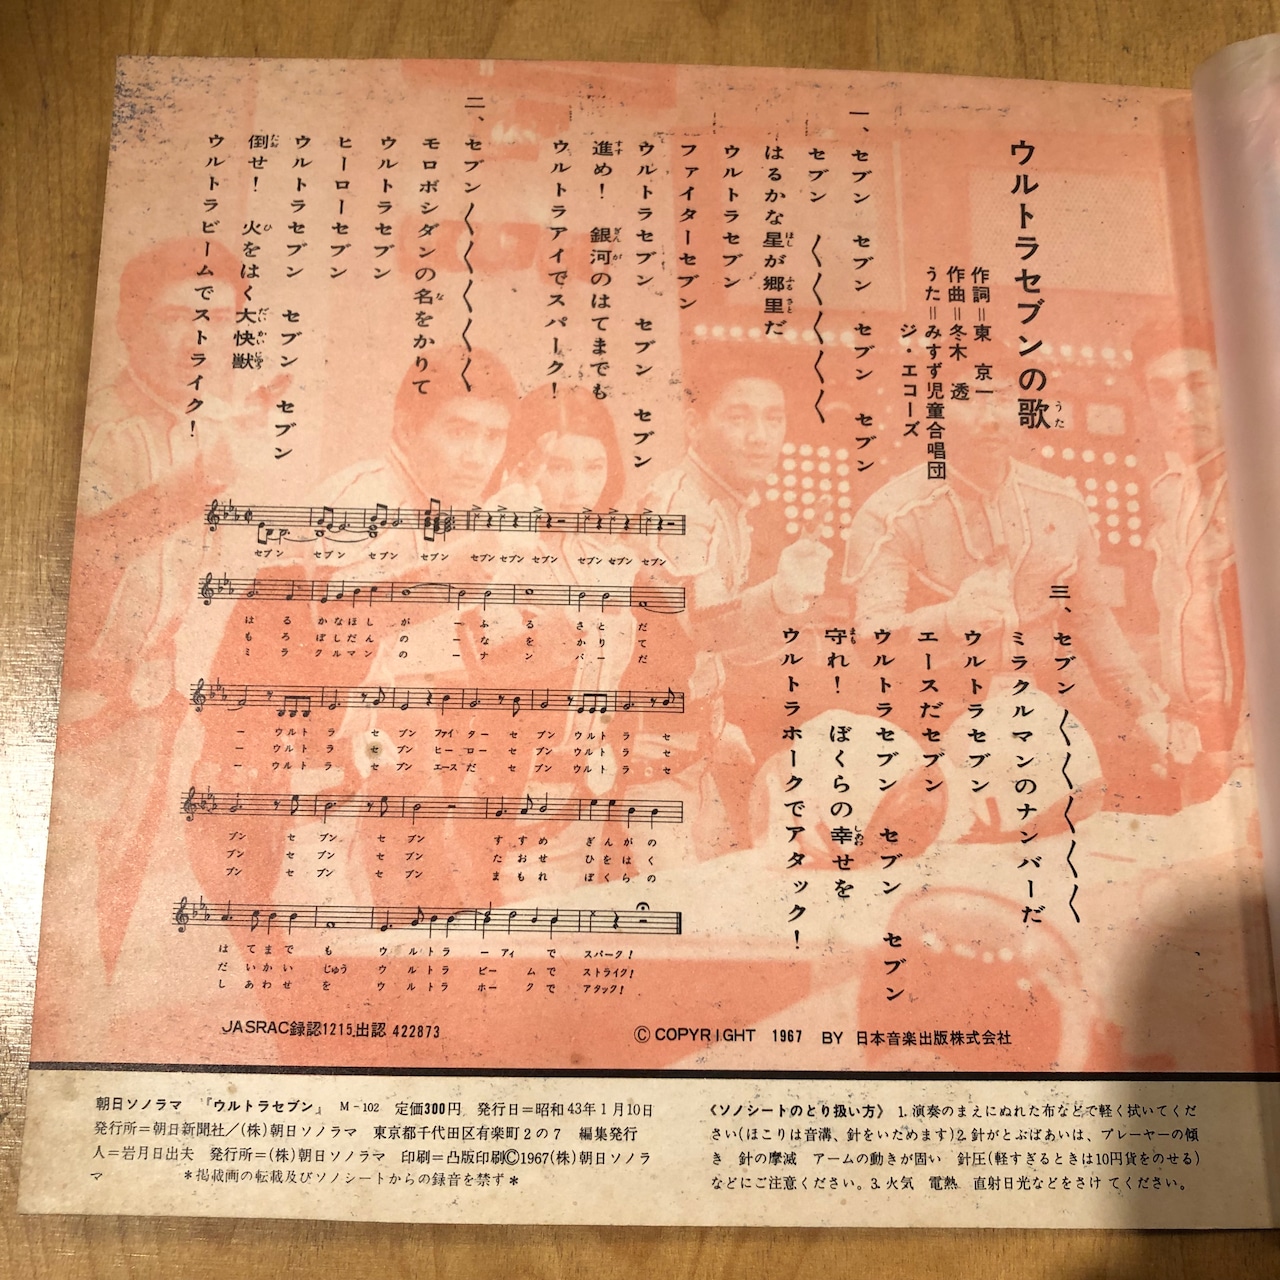 ウルトラセブンの歌
うた
作詞＝東　京一
作曲＝冬木　透
うた＝みすず児童合唱団
ジ・エコーズ
一、セブン　セブン　セブン　セブン
セブン　〱〱〱〱〱
はるかな星が郷里だ
ほし　ふるさと
ウルトラセブン
ファイターセブン
ウルトラセブン　セブン　セブン
進め！　銀河のはてまでも
すす　ぎんが
ウルトラアイでスパーク！
二、セブン〱〱〱〱〱
モロボシダンの名をかりて
な
ウルトラセブン
ヒーローセブン
ウルトラセブン　セブン　セブン
倒せ！　火をはく大快獣
たお　ひ　だいかいじゅう
ウルトラビームでストライク！
三、セブン〱〱〱〱〱
ミラクルマンのナンバーだ
ウルトラセブン
エースだセブン
ウルトラセブン　セブン　セブン
守れ！　ぼくらの幸せを
まも　しあわ
ウルトラホークでアタック！
セブン　セブン　セブン　セブン　セブン セブン セブン　セブン セブン セブン
は る か な ほ し が ー ふ る さ と だ
も ろ ぼ し だ ん の ー な を か り て
ミ ラ ク ル マ ン の ー ナ ン バ ー だ
ー ウルト ラ セ ブン ファイ ター セ ブン ウルト ラ セ
ー ウルト ラ セ ブン ヒー ロー セ ブン ウルト ラ セ
ー ウルト ラ セ ブン エース だ セ ブン ウルト ラ セ
ブン セ ブン セ ブン す す め ぎ ん が の
ブン セ ブン セ ブン た お せ ひ を は く
ブン セ ブン セ ブン ま も れ ぼ く ら の
は て ま で も ウ ル ト ラ ー アイ で スパーク！
だ い か い じゅう ウ ル ト ラ ビー ム で ストライク！
し あ わ せ を ウ ル ト ラ ホー ク で アタック！
JASRAC録認1215.出認 422873
Ⓒ COPYRIGHT 1967 BY 日本音楽出版株式会社
朝日ソノラマ　『ウルトラセブン』　M－102　定価300円　発行日＝昭和43年1月10日
発行所＝朝日新聞社／(株)朝日ソノラマ　東京都千代田区有楽町2の7　編集発行
人＝岩月日出夫　発行所＝(株)朝日ソノラマ　印刷＝凸版印刷Ⓒ1967(株)朝日ソノラ
マ　＊掲載画の転載及びソノシートからの録音を禁ず＊
《ソノシートのとり扱い方》 1.演奏のまえにぬれた布などで軽く拭いてくだ
さい(ほこりは音溝、針をいためます)2.針がとぶばあいは、プレーヤーの傾
き　針の摩滅　アームの動きが固い　針圧(軽すぎるときは10円貨をのせる)
などにご注意ください。3.火気　電熱　直射日光などをさけてください。